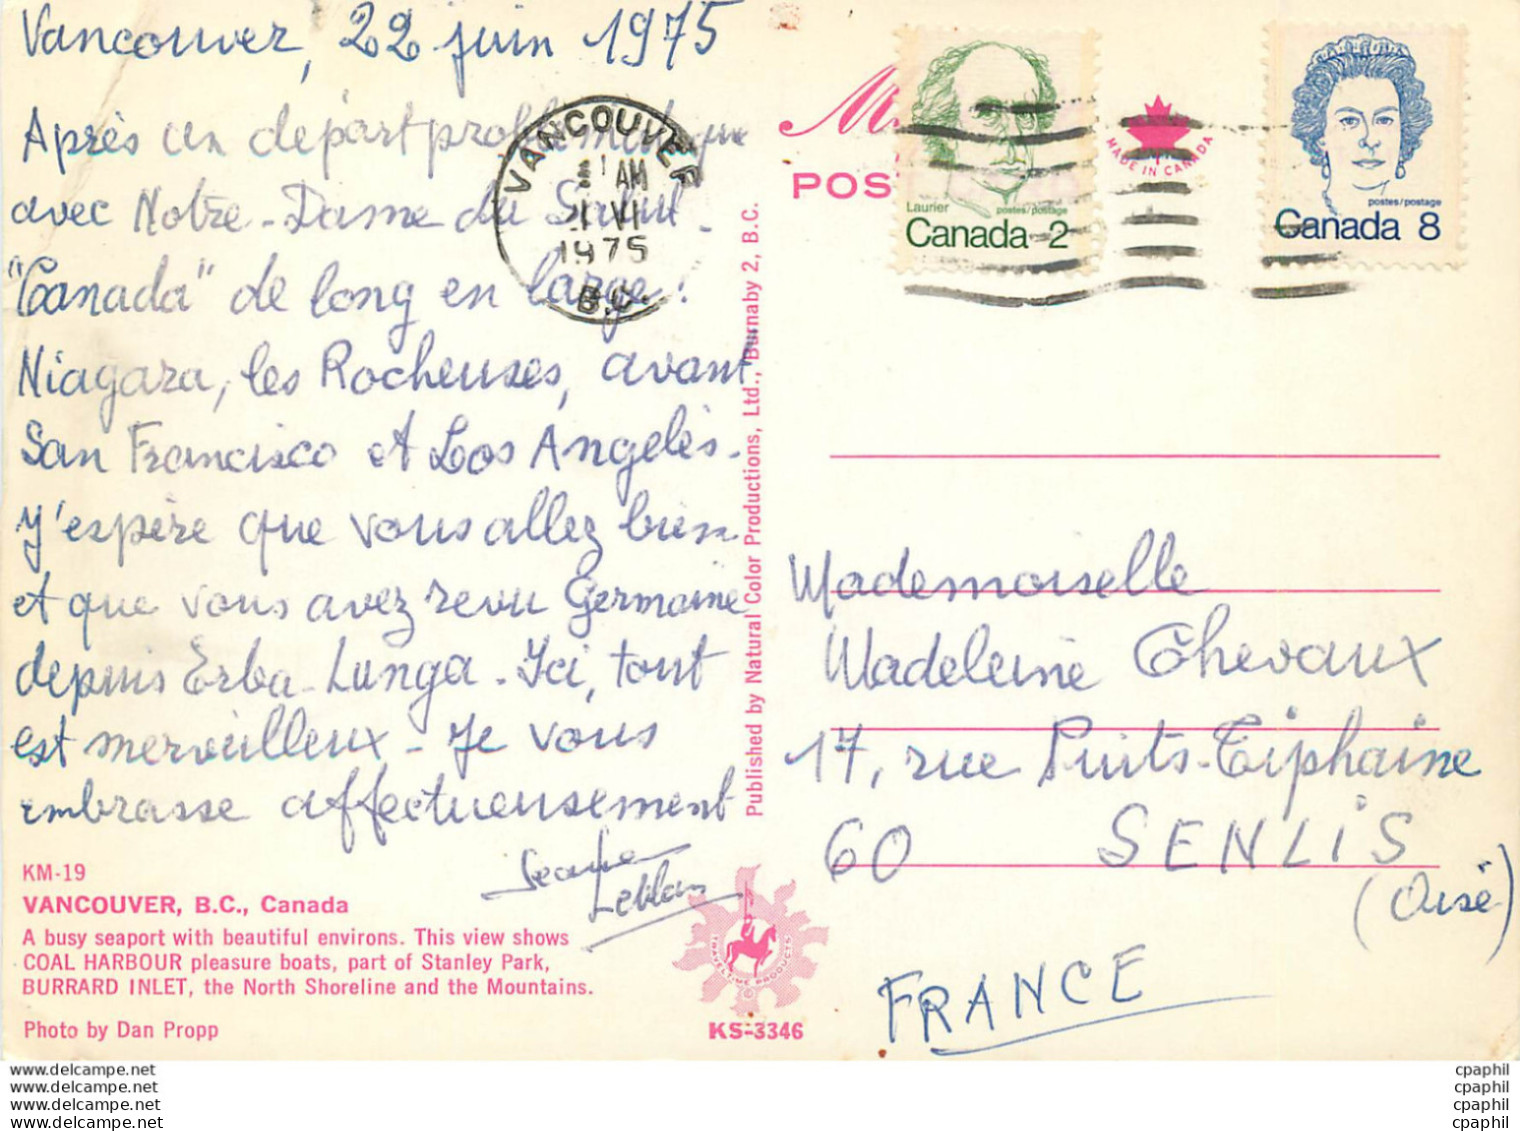 Vancouver, 22 juin 1975
Après un départ problématique
avec Notre-Dame du Salut.
"Canada" de long en large!
Niagara, les Rocheuses, avant
San Francisco et Los Angelès.
J'espère que vous allez bien
et que vous avez revu Germaine
depuis Erba-Lunga. Ici, tout
est merveilleux. Je vous
embrasse affectueusement
Leblan
KM-19
VANCOUVER, B.C., Canada
A busy seaport with beautiful environs. This view shows
COAL HARBOUR pleasure boats, part of Stanley Park,
BURRARD INLET, the North Shoreline and the Mountains.
Photo by Dan Propp
VANCOUVER
AM
VI
1975
B.C.
Published by Natural Color Productions, Ltd., Burnaby 2, B.C.
TRAVELTIME PRODUCTS
KS-3346
POST
Laurier
postes/postage
Canada 2
MADE IN CANADA
postes/postage
Canada 8
Mademoiselle
Madeleine Chevaux
17, rue Puits-Tiphaine
60 SENLIS
(Oise)
FRANCE
www.delcampe.net
www.delcampe.net
www.delcampe.net
www.delcampe.net
cpaphil
cpaphil
cpaphil
cpaphil